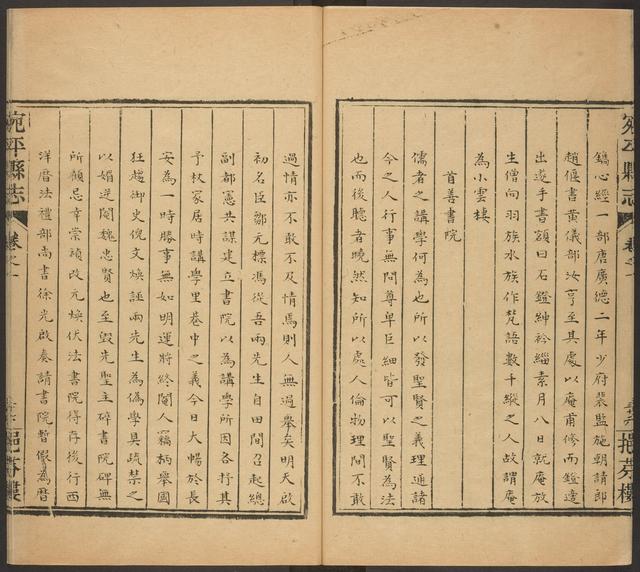 宛平縣志
卷之一
鐫心經一部唐廣德二年少府裴監施朝請郎
趙偃書黃儀部汝亨至其處以庵甫修而鐙遠
出邊手書額曰石鐙紳衿緇素月八日就庵放
生僧向羽族水族作梵語數千縱之人故謂庵
為小雲棲
首善書院
儒者之講學何為也所以發聖賢之義理通諸
今之人行事無問尊卑巨細皆可以聖賢為法
也而後聽者曉然知所以處人倫物理間不敢
過情亦不敢不及情焉則人無過舉矣明天啟
初名臣鄒元標馮從吾兩先生自田間召起總
副都憲共謀建立書院以為講學所因各抒其
予杖家居時講學里巷中之義今日大暢於長
安為一時勝事無如明運將終閹人竊柄舉國
狂趨御史倪文煥誣兩先生為偽學具疏禁之
以媚逆閹魏忠賢也至毀先聖主碎書院碑無
所顧忌幸崇禎改元煥伏法書院得存後行西
洋曆法禮部尚書徐光啟奏請書院暫假為曆
宛平縣志
卷之一